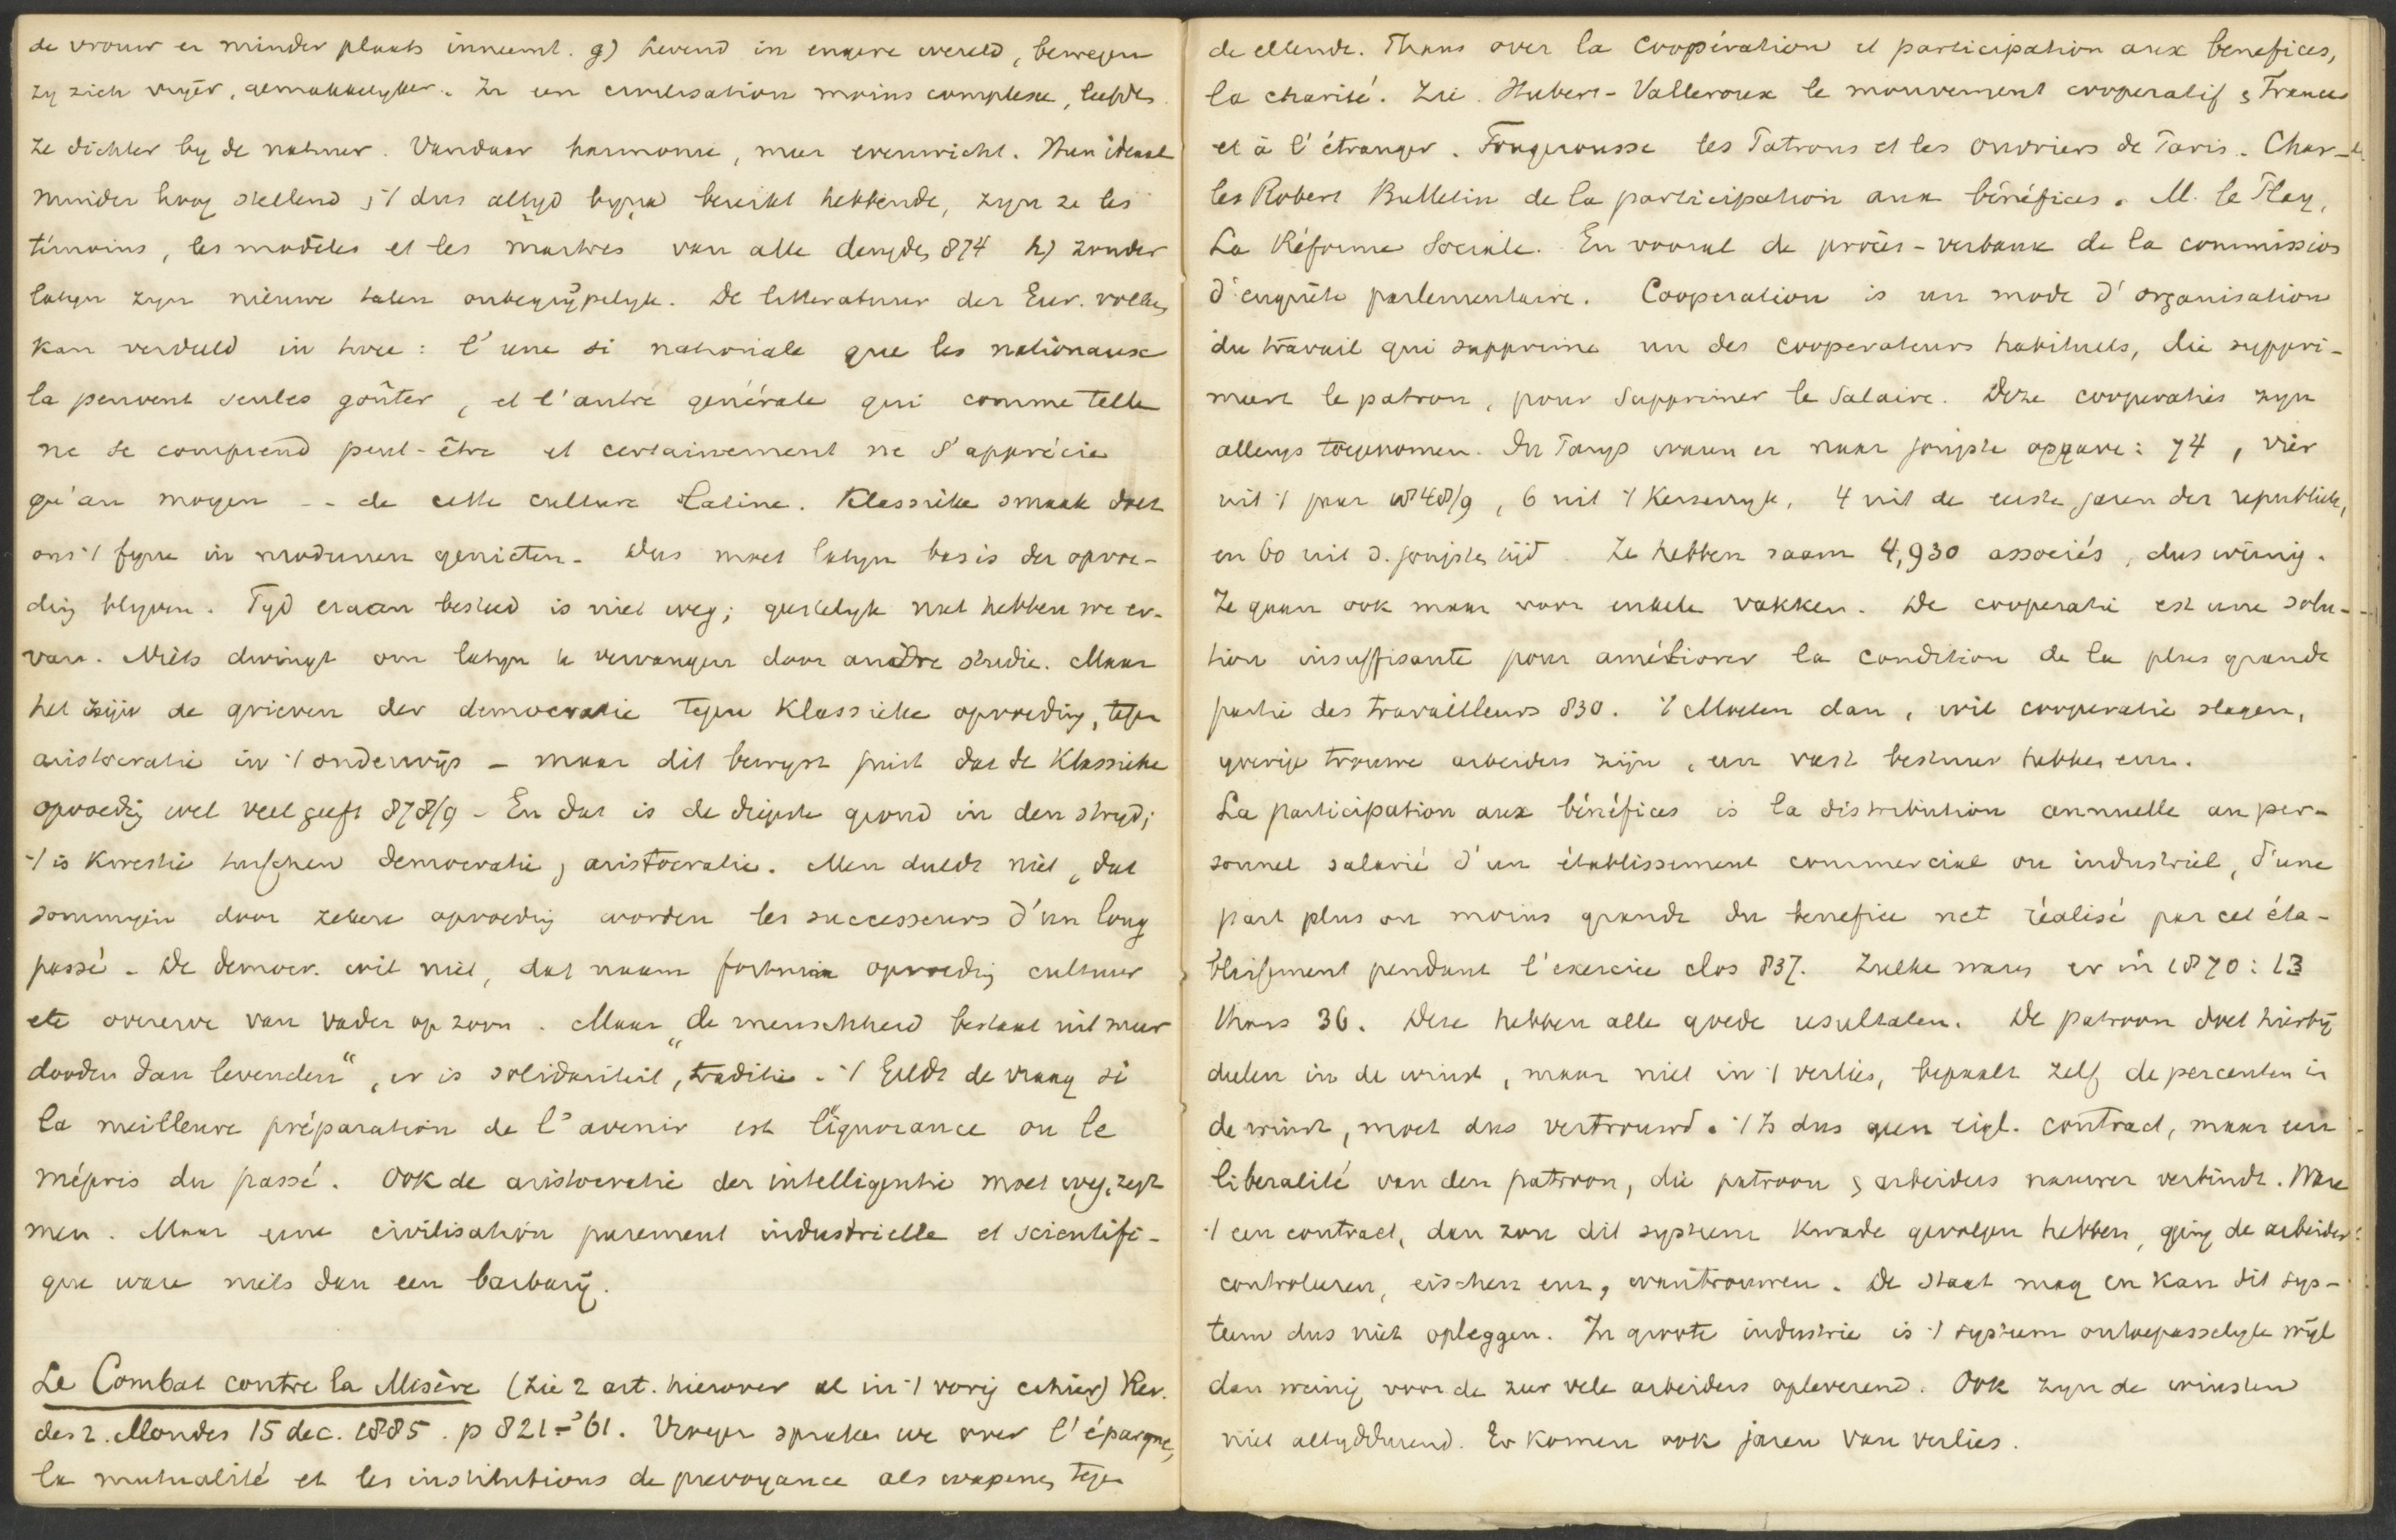 de vrouw er minder plaats inneemt. g) Levend in engere wereld, bewegen
zy zich vryer, gemakkelyker. In een civilisation moins complexe, leefden
ze dichter by de natuur. Vandaar harmonie, meer evenwicht. Hun ideaal
minder hoog stellend, 't dus altyd byna bereikt hebbende, zyn ze les
témoins, les modèles et les maitres van alle deugden 874 h) zonder
latyn zyn nieuwe talen onbegrypelyk. De litteratuur der Eur. volken
kan verdeeld in twee: l'une si nationale que les nationaux
la peuvent seules goûter, et l'autre générale qui comme telle
ne se comprend peut-être et certainement ne s'apprécie
qu'au moyen -- de cette culture Latine. Klassieke smaak doet
ons 't fyne in modernen genieten. Dus moet latyn basis der opvoe-
ding blyven. Tyd eraan besteed is niet weg; geestelyk nut hebben we er-
van. Niets dwingt om latyn te vervangen door andre studie. Maar
het zijn de grieven der democratie tegen klassieke opvoeding, tegen
aristocratie in 't onderwijs - maar dit bewyst juist dat de klassieke
opvoeding wel veel geeft 878/9 - En dat is de diepste grond in den stryd;
't is kwestie tusschen democratie, aristocratie. Men duldt niet, dat
sommigen door zekere opvoeding worden les successeurs d'un long
passé. De democr. wil niet, dat naam fortuin opvoeding cultuur
etc overerve van vader op zoon. Maar „de menschheid bestaat uit meer
dooden dan levenden“, er is solidariteit, traditie. 't Geldt de vraag si
la meilleure préparation de l'avenir est l'ignorance ou le
mépris du passé. Ook de aristocratie der intelligentie moet weg, zegt
men. Maar une civilisation purement industrielle et scientifi-
que ware niets dan een barbarij.
Le Combat contre la Misère (zie 2 art. hierover al in 't vorig cahier) Rev.
des 2. Mondes 15 dec. 1885. p 821-'61. Vroeger spraken we over l'épargne,
la mutualité et les institutions de prevoyance als wapenen tegen
de ellende. Thans over la coopération et participation aux benefices,
la charité. Zie. Hubert-Valleroux le mouvement cooperatif en France
et à l'étranger. Fougerousse les Patrons et les ouvriers de Paris. Char-
les Robert Bulletin de la participation aux bénéfices. M. le Play,
La Réforme Sociale. En vooral de procès-verbaux de la commission
d'enquête parlementaire. Cooperation is un mode d'organisation
du travail qui supprime un des cooperateurs habituels, die suppri-
meert le patron, pour supprimer le salaire. Deze cooperaties zyn
allengs toegenomen. In Parys waren er naar jongste opgave: 74, vier
uit 't jaar 1848/9, 6 uit 't Keizerryk, 4 uit de eerste jaren der republiek,
en 60 uit d. jongsten tijd. Ze hebben saam 4,930 associés, dus weinig.
Ze gaan ook maar voor enkele vakken. De cooperatie est une solu-
tion insuffisante pour améliorer la condition de la plus grande
partie des travailleurs 830. 't Moeten dan, wil cooperatie slagen,
yverige trouwe arbeiders zijn, een vast bestuur hebben enz.
La participation aux bénéfices is la distribution annuelle au per-
sonnel salarié d'un établissement commercial ou industriel, d'une
part plus ou moins grande du benefice net réalisé par cet éta-
blissement pendant l'exercice clos 837. Zulke waren er in 1870: 13
thans 36. Deze hebben alle goede resultaten. De patroon doet hierbij
deelen in de winst, maar niet in 't verlies, bepaalt zelf de percenten in
de winst, moet dus vertrouwd. 't Is dus geen eigl. contract, maar een
liberalité van den patroon, die patroon en arbeiders nauwer verbindt. Ware
't een contract, dan zou dit systeem kwade gevolgen hebben, ging de arbeider
controleren, eischen enz, wantrouwen. De staat mag en kan dit sys-
teem dus niet opleggen. In groote industrie is 't systeem ontoepasselyk wijl
dan weinig voor de zeer vele arbeiders opleverend. Ook zyn de winsten
niet altyddurend. Er komen ook jaren van verlies.